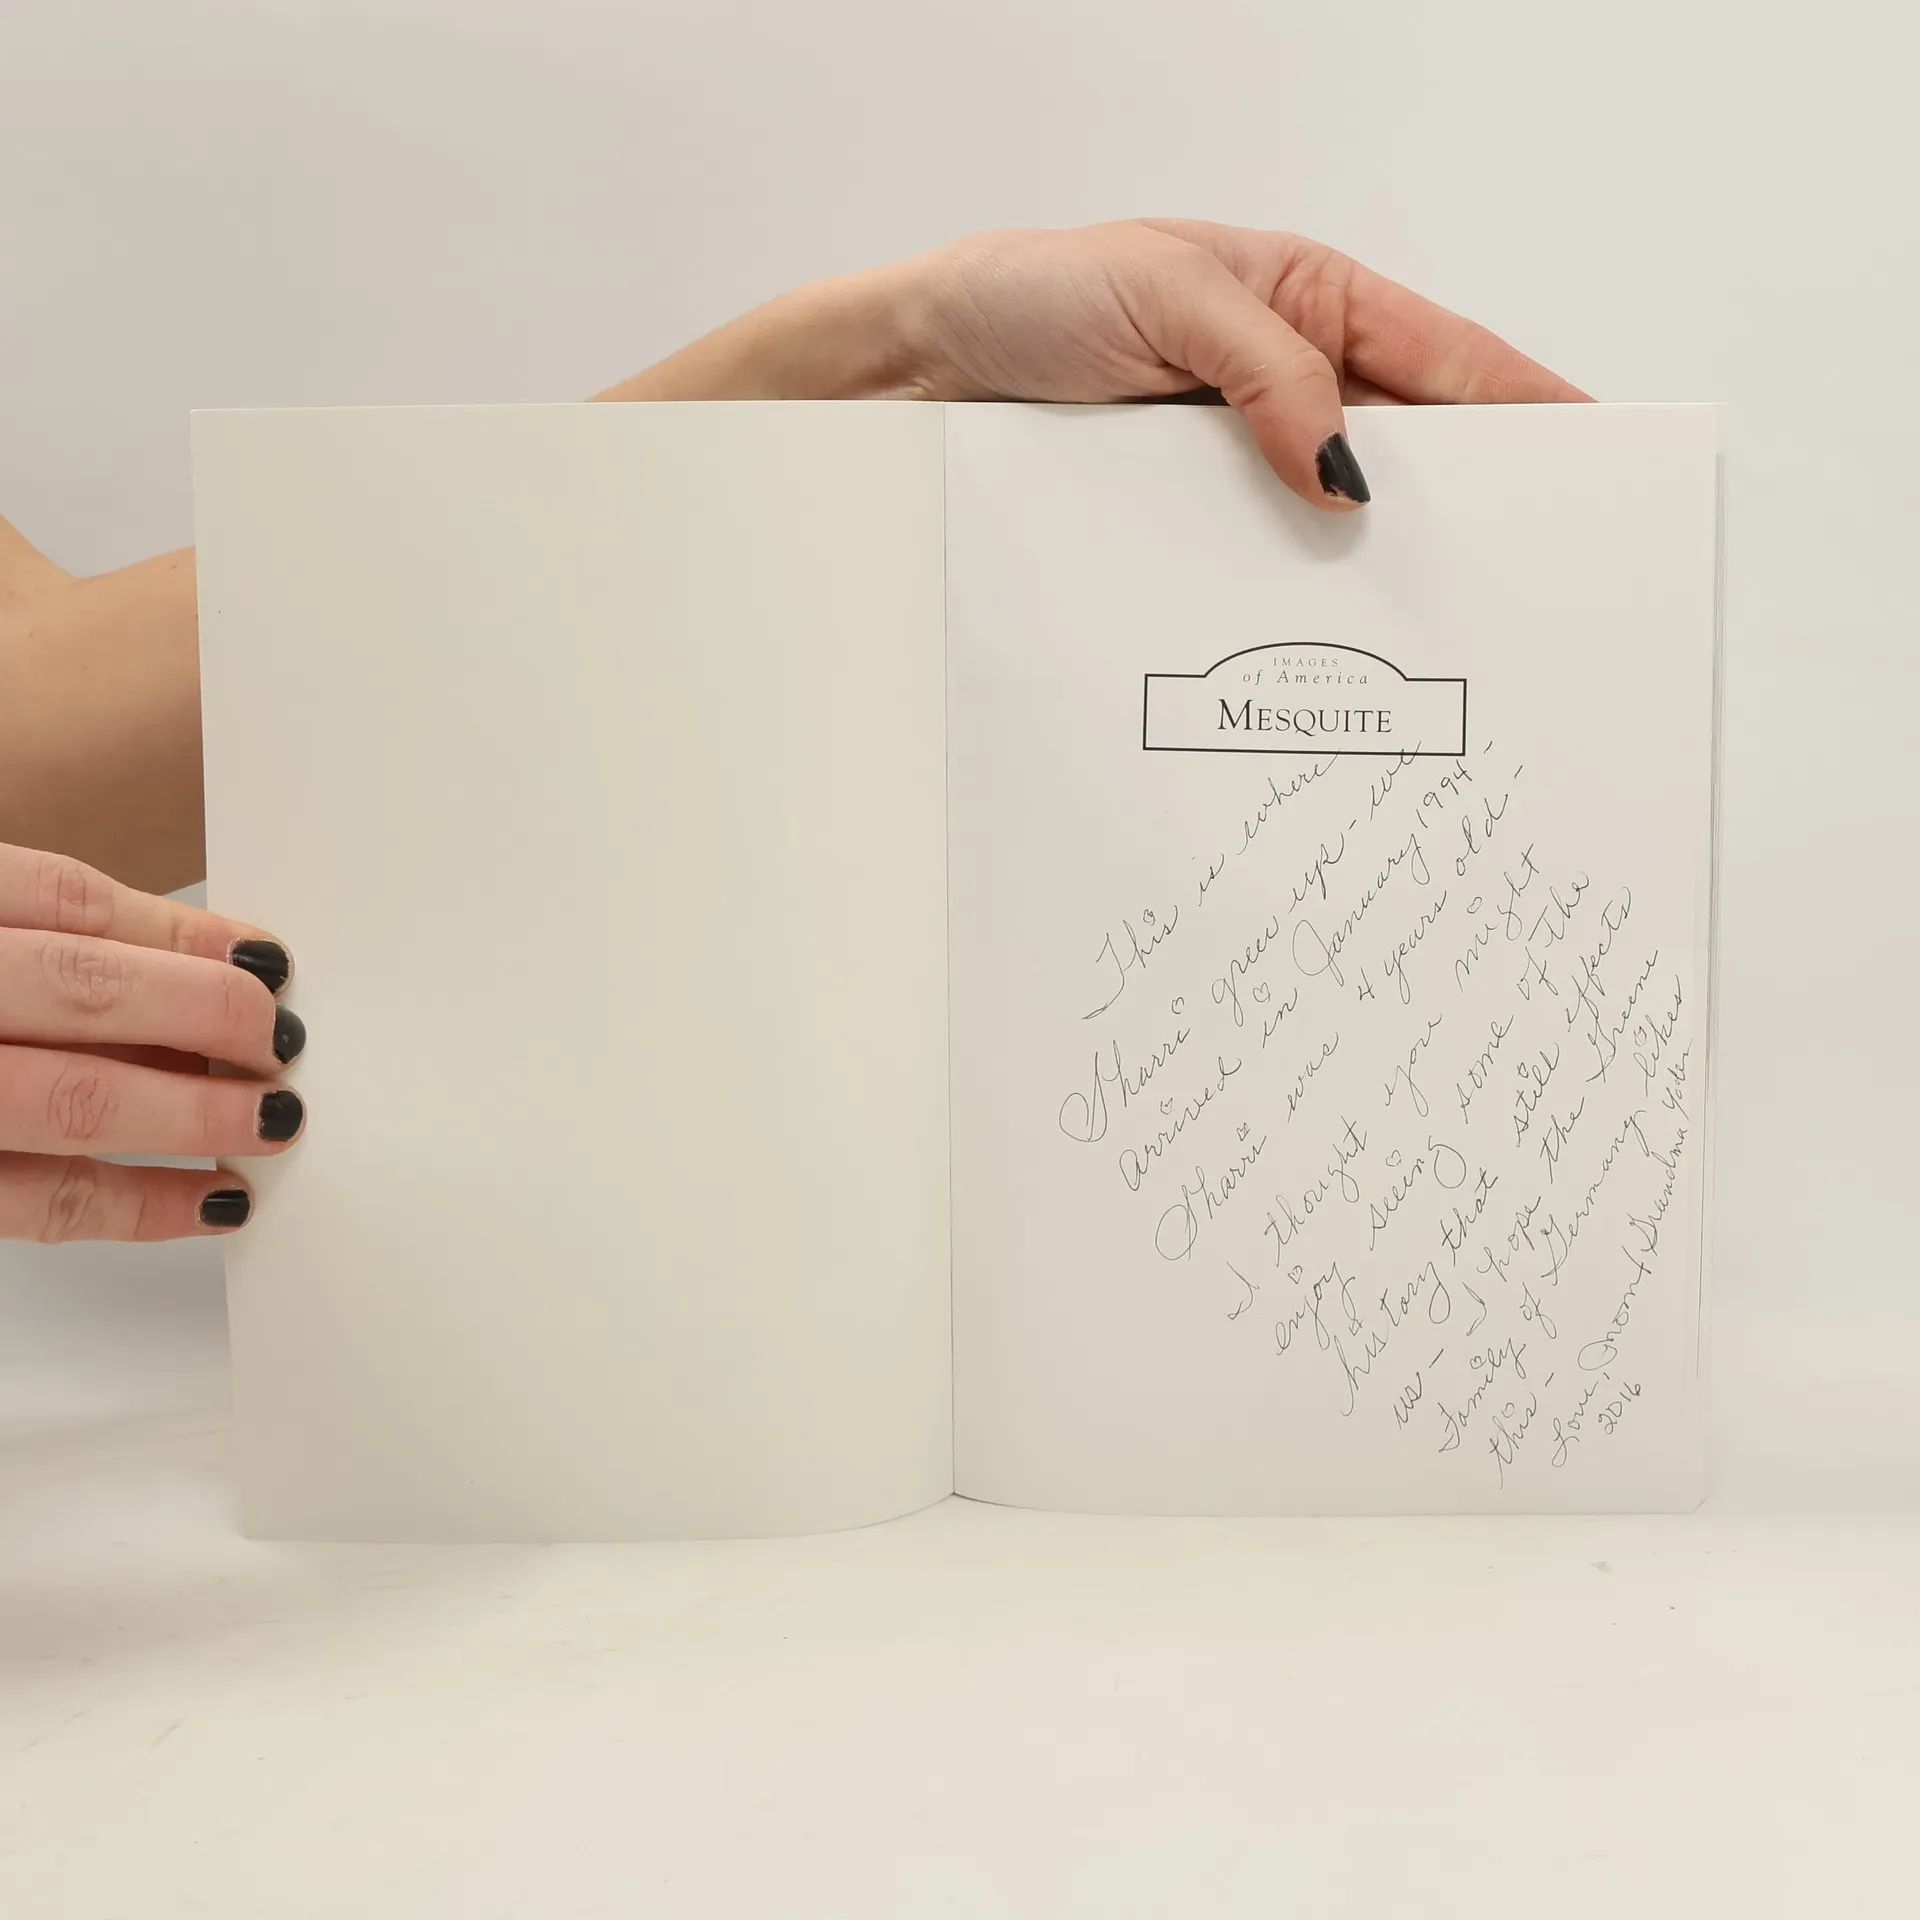 IMAGES
of America
MESQUITE
This is where
Sharri grew up - we
arrived in January 1994 -
Sharri was 4 years old -
I thought you might
enjoy seeing some of the
history that still effects
us - I hope the Greene
Family of Germany likes
this -
Love, Mom & Grandma Yoder
2016